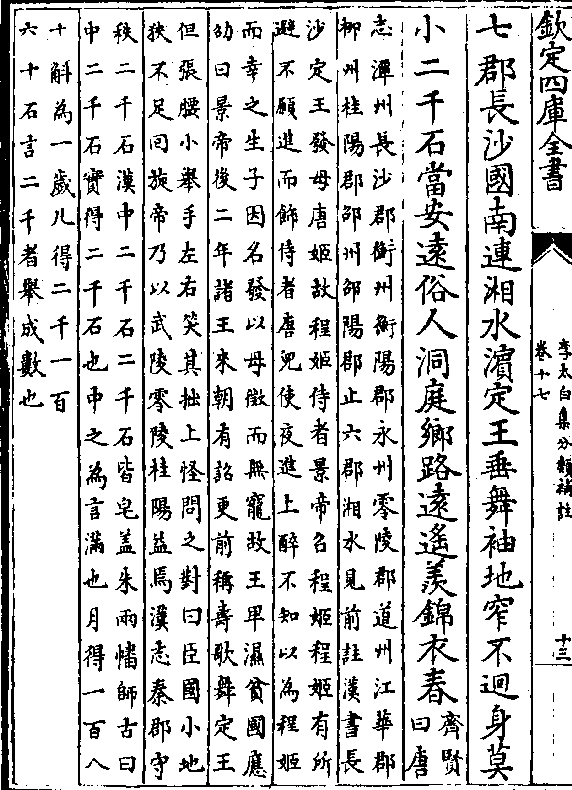 欽定四庫全書
李太白集分類補註
卷十七
十三
七郡長沙國南連湘水濱定王垂舞袖地窄不迴身莫
小二千石當安遠俗人洞庭鄉路遠遙羨錦衣春
齊賢
曰唐
志潭州長沙郡衡州衡陽郡永州零陵郡道州江華郡
郴州桂陽郡邵州邵陽郡止六郡湘水見前註漢書長
沙定王發母唐姬故程姬侍者景帝召程姬程姬有所
避不願進而飾侍者唐兒使夜進上醉不知以為程姬
而幸之生子因名發以母微而無寵故王卑濕貧國應
劭曰景帝後二年諸王來朝有詔更前稱壽歌舞定王
但張䙅小舉手左右笑其拙上怪問之對曰臣國小地
狹不足囘旋帝乃以武陵零陵桂陽益焉漢志秦郡守
秩二千石漢中二千石二千石皆皂盖朱兩幡師古曰
中二千石實得二千石也中之為言滿也月得一百八
十斛為一歳凡得二千一百
六十石言二千者舉成數也